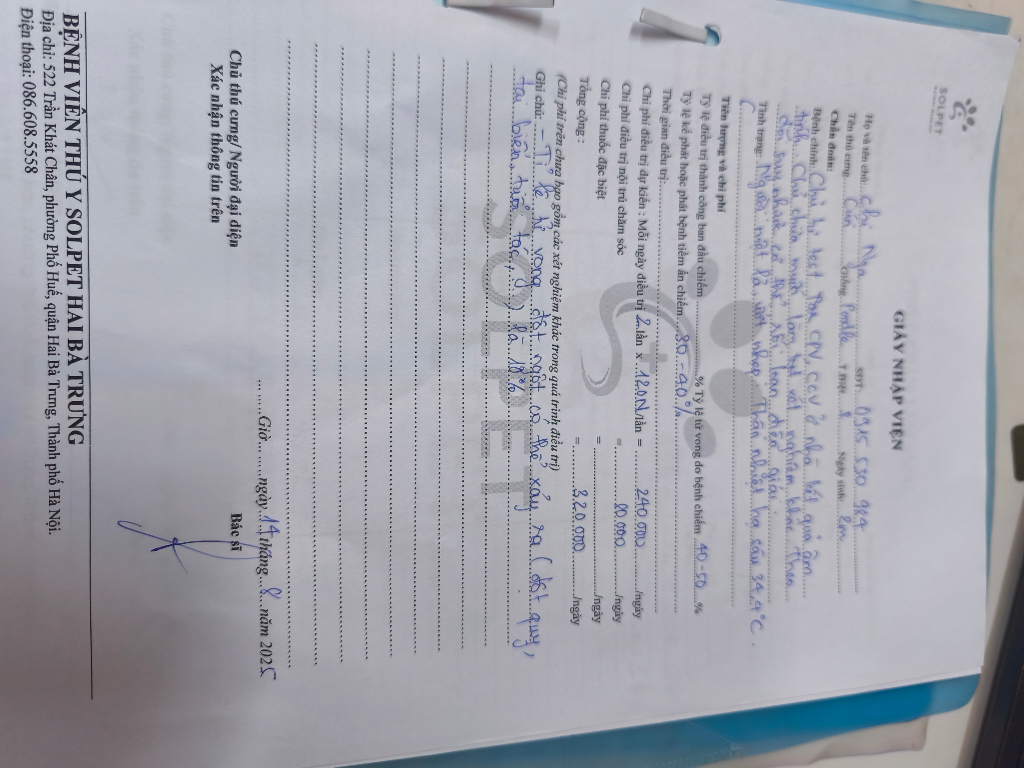 SOLPET
GIẤY NHẬP VIỆN
Họ và tên chủ: Chị Nga SĐT: 0915 530 984
Tên thú cưng: Cún Giống: Poodle T.Biệt: Ngày sinh: 2m
Chẩn đoán:
Bệnh chính: Chủ tự test Parvo, CPV, CCV ở nhà kết quả âm
tính. Chủ chưa muốn làm xét nghiệm khác theo
dõi suy nhược cơ thể, rối loạn điện giải
Tình trạng: Ngáp, mệt lả, Thân nhiệt hạ sâu 34,4°C.
Tiên lượng và chi phí
Tỷ lệ điều trị thành công ban đầu chiếm % Tỷ lệ tử vong do bệnh chiếm 40-50 %
Tỷ lệ kế phát hoặc phát bệnh tiềm ẩn chiếm 30-40%
Thời gian điều trị:
Chi phí điều trị dự kiến : Mỗi ngày điều trị 2 lần x 120N/lần = 240.000 /ngày
Chi phí điều trị nội trú chăm sóc = 80.000 /ngày
Chi phí thuốc đặc biệt = /ngày
Tổng cộng : = 320.000 /ngày
(Chi phí trên chưa bao gồm các xét nghiệm khác trong quá trình điều trị)
Ghi chú: - Tỉ lệ tử vong đột ngột có thể xảy ra (đột quỵ,
tai biến, tuổi tác,...) là 10%
SOLPET
Giờ ngày 14 tháng 8 năm 2025
Chủ thú cưng/ Người đại diện Bác sĩ
Xác nhận thông tin trên
BỆNH VIỆN THÚ Y SOLPET HAI BÀ TRƯNG
Địa chỉ: 522 Trần Khát Chân, phường Phố Huế, quận Hai Bà Trưng, Thành phố Hà Nội.
Điện thoại: 086.608.5558